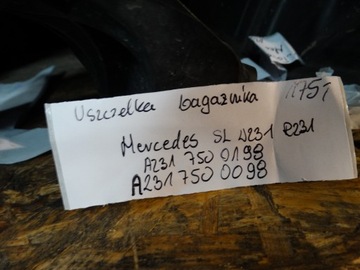 Uszczelka bagażnika 1751
Mercedes SL W231 R231
A231 750 0198
A231 750 0098